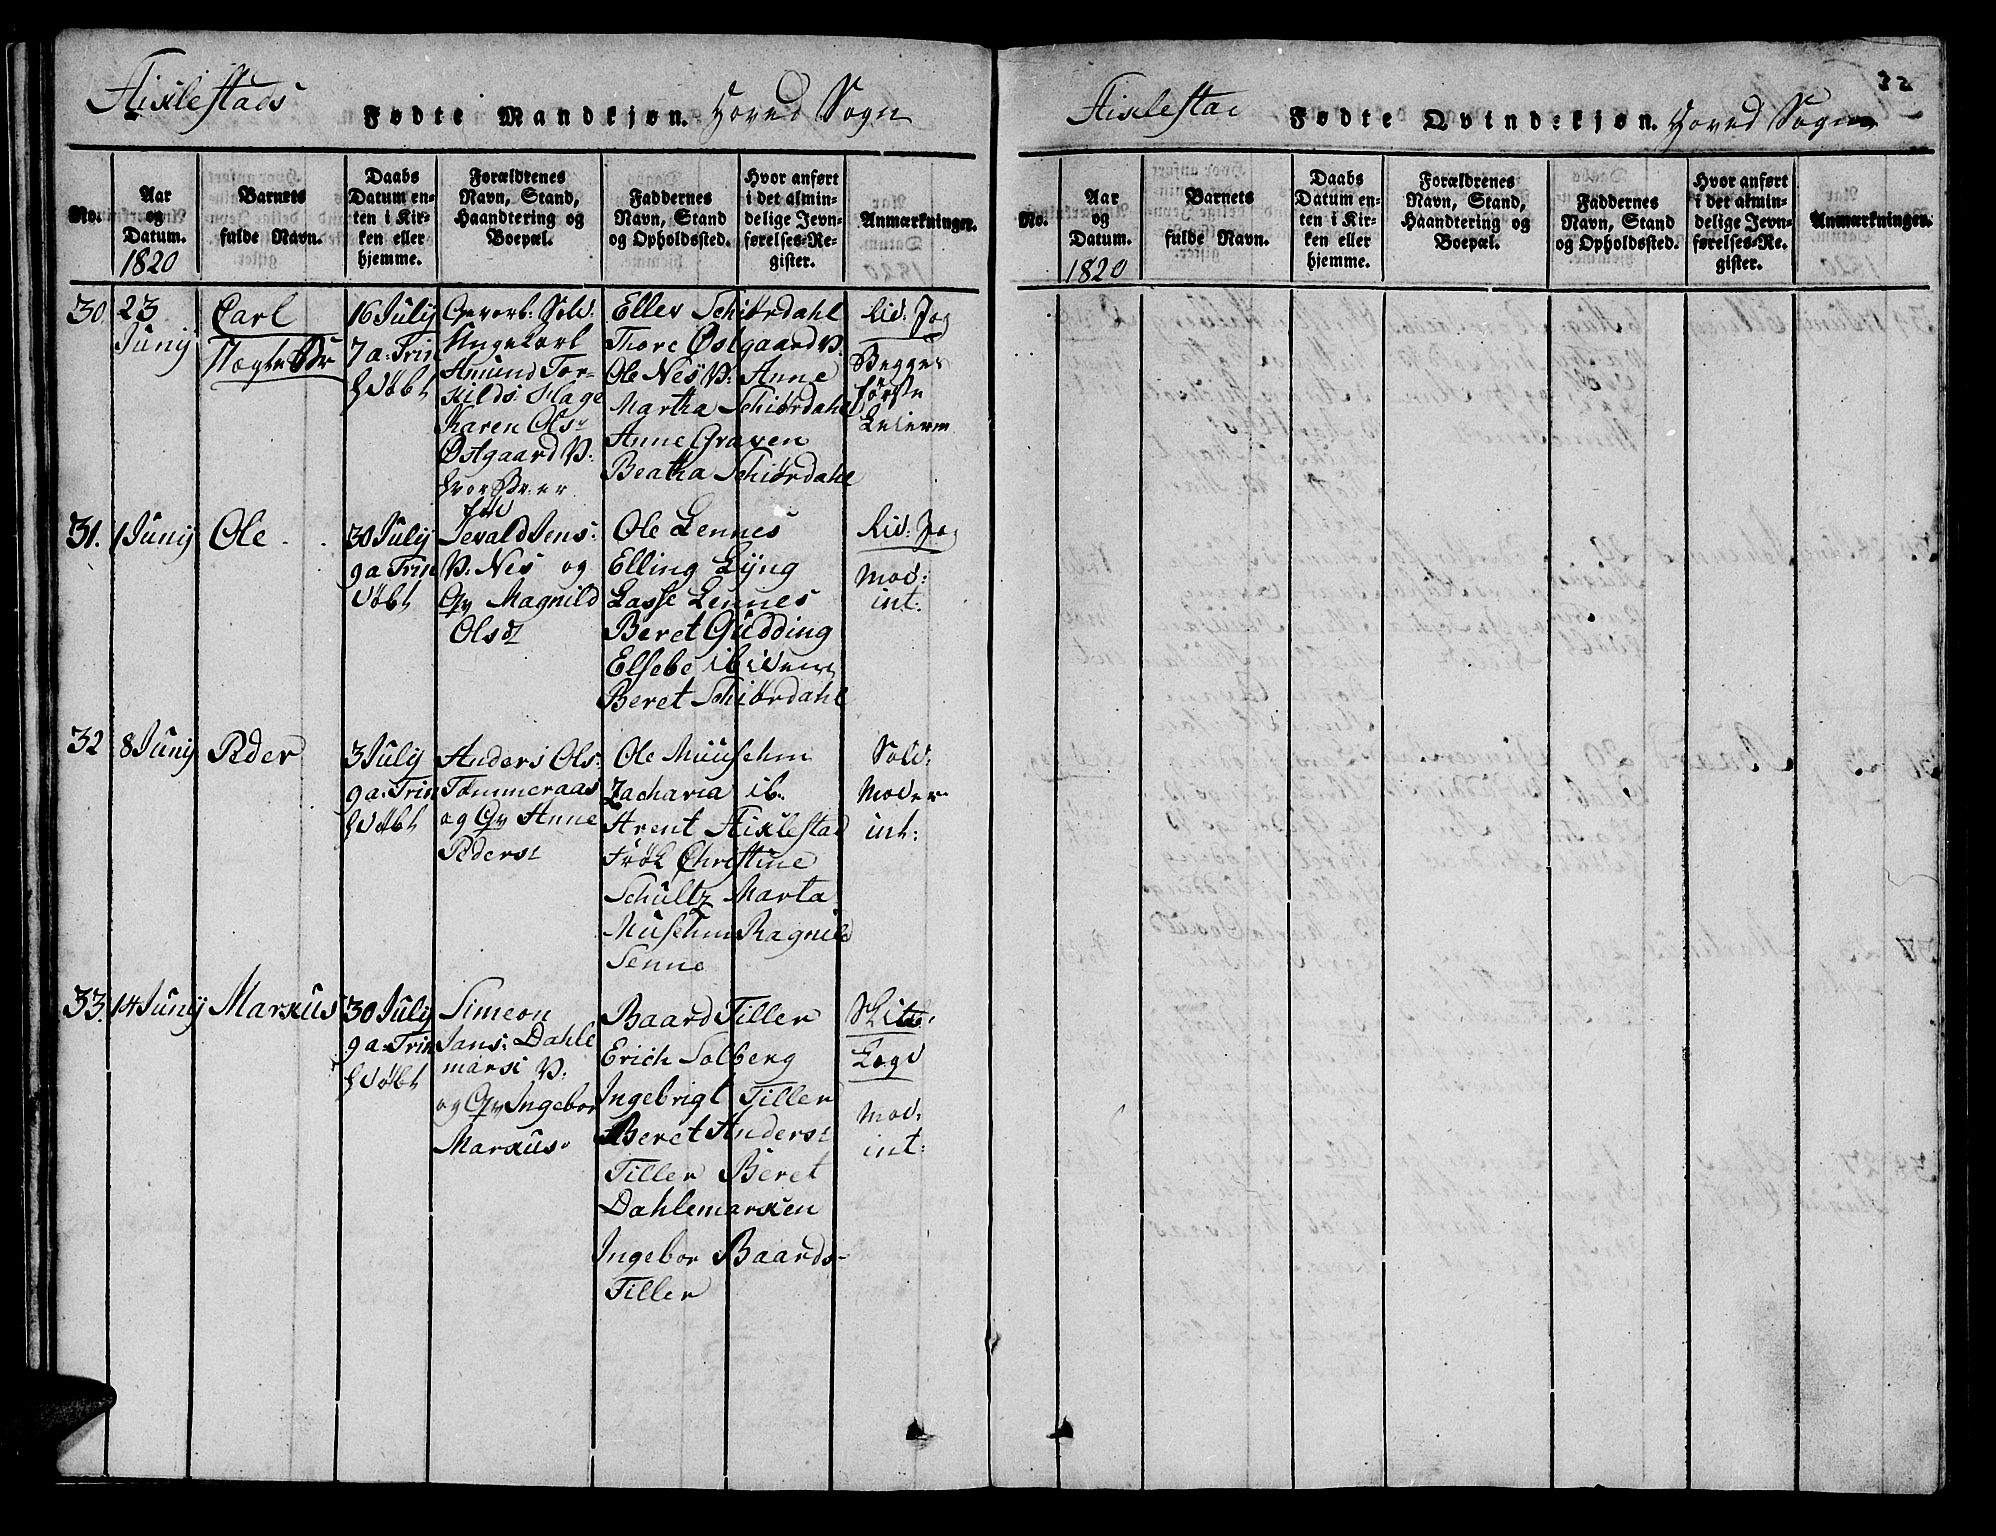 Aixlestads Fødte Mandkjøn. Hoved Sogn
No.
Aar
og
Datum.
1820
Barnets
fulde Navn.
Daabs
Datum en-
ten i Kir-
ken eller
hjemme.
Forældrenes
Navn, Stand,
Haandtering og
Boepæl.
Faddernes
Navn, Stand
og Opholdssted.
Hvor anført
i det almin-
delige Jevn-
førelses-Re-
gister.
Anmærkninger.
30
23
Junij
Carl
16 July
7 a. Trin
hdøbt
Gevorb: Sold:
Ungekarl
Amund Tor-
kilds: Hage
Karen Ols
Østgaard V:
Eller Schiørdahl
Thore Østgaard V:
Ole Nes V: Anne
Martha Schiørdahl
Anne Graven
Beatha Schiørdahl
Begges
første
31.
1 Junij
Ole
30 July
9 a. Trin
døbt
Sevald Jens:
V: Nes og
Gv Magnild
Olsd
Ole Lennes
Elling Lyng
Lasse Lennes
Beret Gudding
Elsebe ibidem
Beret Schiørdahl
Mod:
int:
32
8 Junij
Peder
3 July
9 a. Trin
hdøbt
Anders Ols:
Tømmeraas
og Gv Anne
Peders
Ole Muusehm
Zacharia ib.
Arent Aixlestad
Frøk Christine
Schultz Marta
Musehm Ragnild
Senne
Sold:
Moder
int:
33.
14 Junij
Marxus
30 July
9 a. Trin
hdøbt
Simeon
Jans: Dahle
marx V:
og Gv Ingebor
Marxus
Baard Tiller
Erich Solberg
Ingebrigt Tiller
Beret Anders
Tiller Beret
Dahlemarxen
Ingebor Baards-
Tiller
Mod:
int:
32
Aixlestad Fødte Qvindekjøn. Hoved Sogn
No.
Aar
og
Datum.
1820
Barnets
fulde Navn.
Daabs
Datum en-
ten i Kir-
ken eller
hjemme.
Forældrenes
Navn, Stand,
Haandtering og
Boepæl.
Faddernes
Navn, Stand
og Opholdssted.
Hvor anført
i det almin-
delige Jevn-
førelses-Re-
gister.
Anmærkninger.